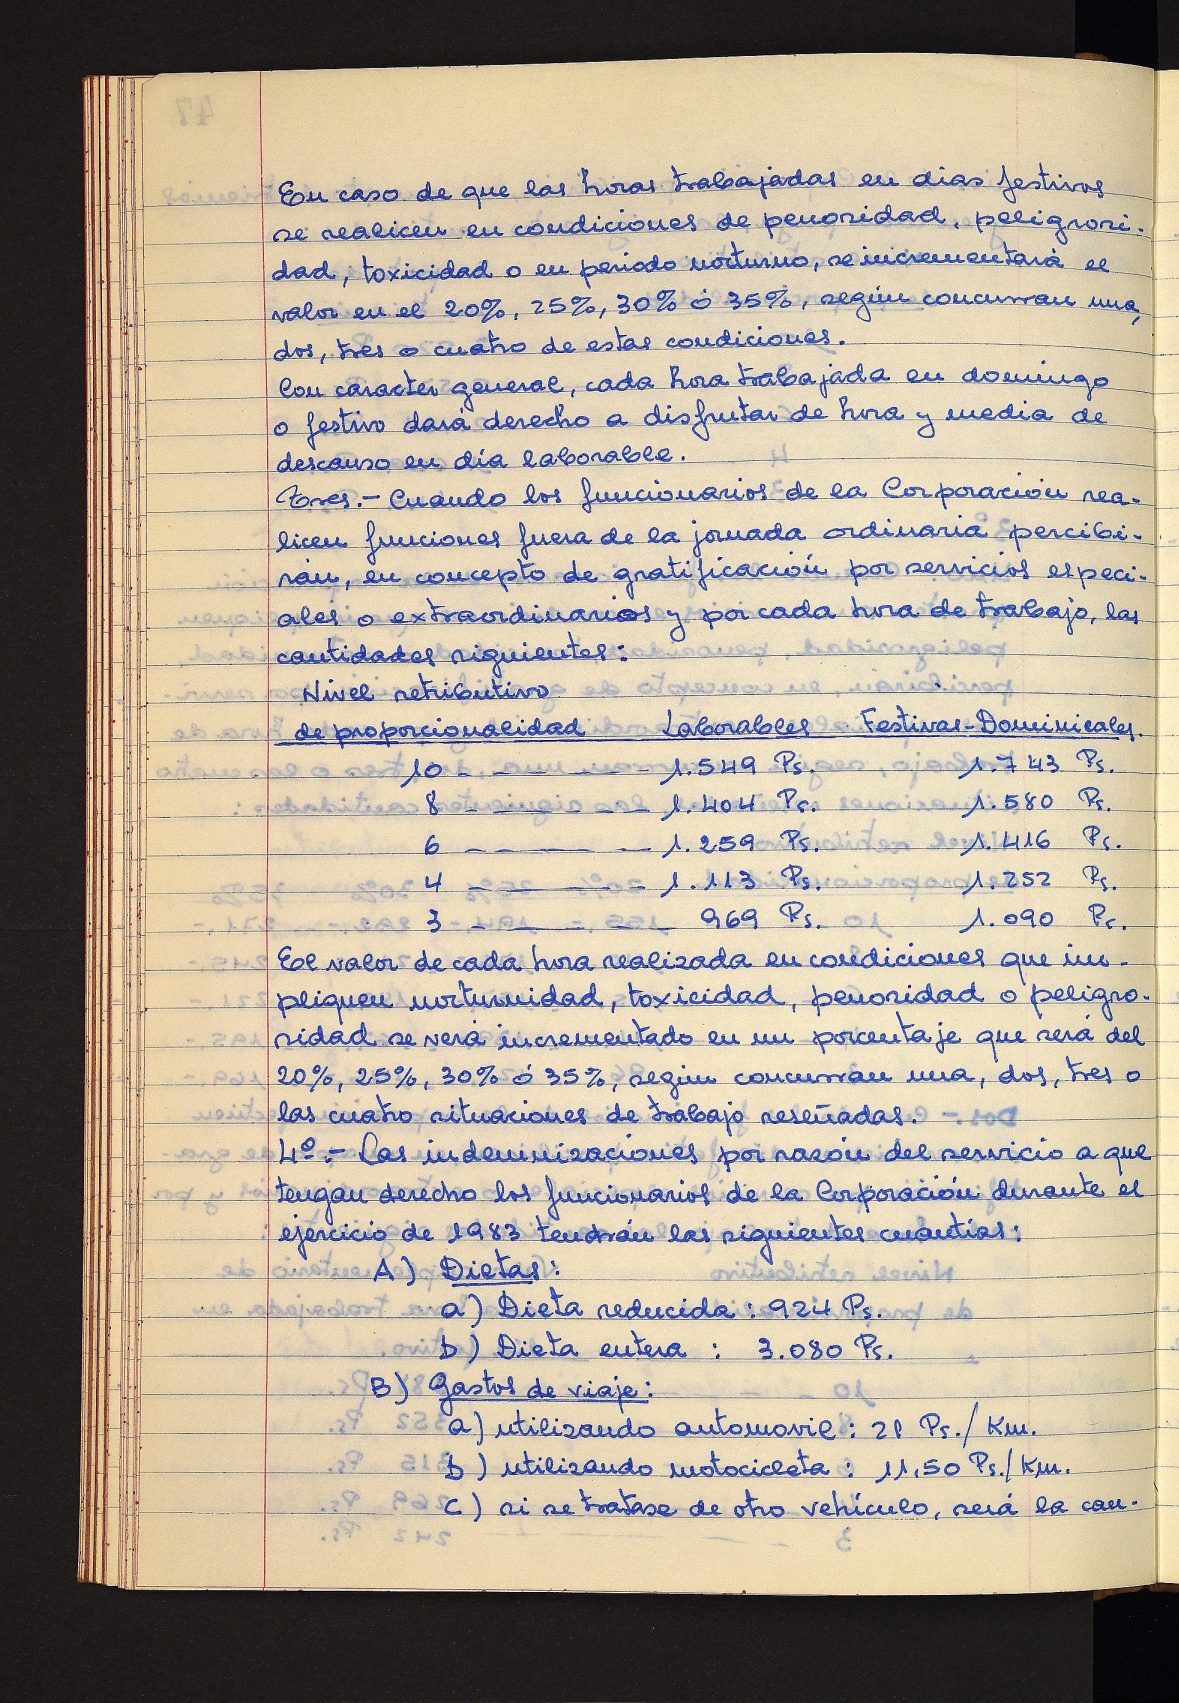 En caso de que las horas trabajadas en dias festivos
se realicen en condiciones de penosidad, peligrosi-
dad, toxicidad o en periodo nocturno, se incrementará el
valor en el 20%, 25%, 30% ó 35%, según concurran una,
dos, tres o cuatro de estas condiciones.
Con caracter general, cada hora trabajada en domingo
o festivo dará derecho a disfrutar de hora y media de
descanso en día laborable.
Tres.- Cuando los funcionarios de la Corporación rea-
licen funciones fuera de la jornada ordinaria percibi-
rán, en concepto de gratificación por servicios especi-
ales o extraordinarios y por cada hora de trabajo, las
cantidades siguientes:
Nivel retributivo
de proporcionalidad Laborables Festivas-Dominicales.
10 - - - - - 1.549 Ps. 1.743 Ps.
8 - - - - - 1.404 Ps. 1.580 Ps.
6 - - - - - 1.259 Ps. 1.416 Ps.
4 - - - - - 1.113 Ps. 1.252 Ps.
3 - - - - - 969 Ps. 1.090 Ps.
El valor de cada hora realizada en condiciones que im-
pliquen nocturnidad, toxicidad, penosidad o peligro-
sidad se verá incrementado en un porcentaje que será del
20%, 25%, 30% ó 35%, según concurran una, dos, tres o
las cuatro situaciones de trabajo reseñadas.
4º.- Las indemnizaciones por razón del servicio a que
tengan derecho los funcionarios de la Corporación durante el
ejercicio de 1983 tendrán las siguientes cuantías:
A) Dietas:
a) Dieta reducida: 924 Ps.
b) Dieta entera: 3.080 Ps.
B) Gastos de viaje:
a) utilizando automovil: Ps./Km.
b) utilizando motocicleta: 11,50 Ps./Km.
c) si se tratase de otro vehículo, será la can-